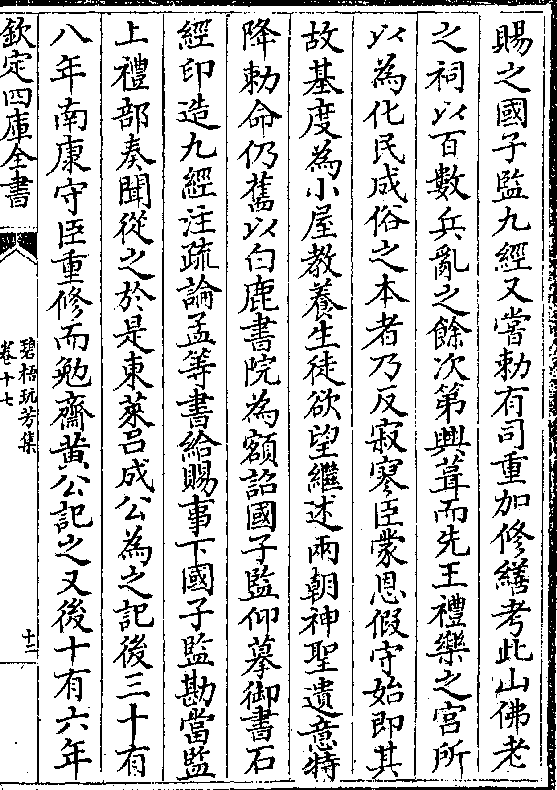 賜之國子監九經又嘗勅有司重加修繕考此山佛老
之祠以百數兵亂之餘次第興葺而先王禮樂之宮所
以為化民成俗之本者乃反寂寥臣蒙恩假守始即其
故基度為小屋教養生徒欲望繼述兩朝神聖遺意特
降勅命仍舊以白鹿書院為額詔國子監仰摹御書石
經印造九經注疏論孟等書給賜事下國子監勘當監
上禮部奏聞從之於是東萊吕成公為之記後三十有
八年南康守臣重修而勉齋黄公記之又後十有六年
欽定四庫全書
碧梧玩芳集
卷十七
十二